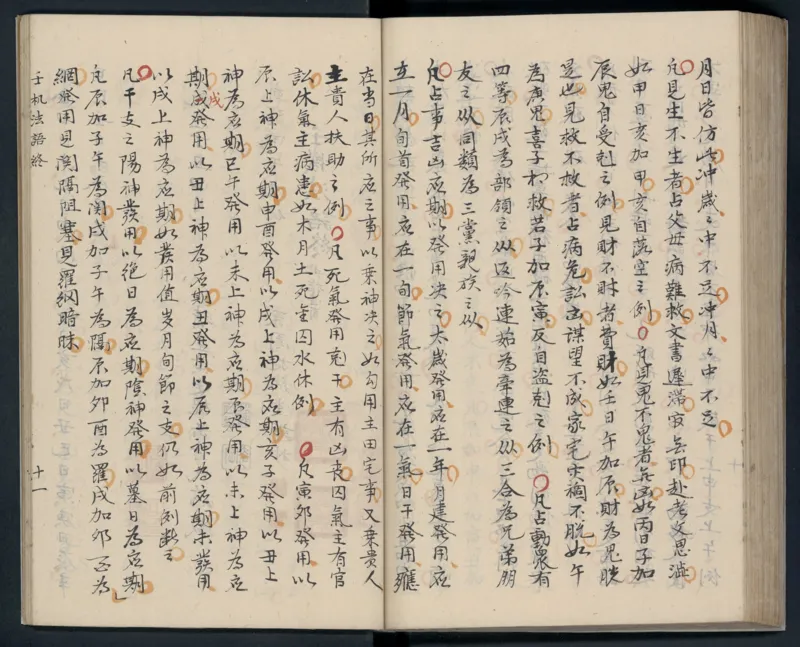 月日皆仿此冲歲之中不足冲月之中不足
凡見生不生者占父母病難救文書遲滯寂無印赴考文思澁
如甲日亥加甲亥自落空之例凡見鬼不鬼者無凶如丙日子加
辰鬼自受剋之例見財不財者費財如壬日午加辰財為鬼脱
是也見救不救者占病危訟凶謀望不成家宅灾禍不脱如午
為庚鬼喜子相救若子加辰寅反自盗剋之例凡占動衆有
四等辰戌為部領之從返吟連茹為牽連之從三合為兄弟朋
友之從同類為三黨親族之從
凡占事吉凶應期以發用决之太歲發用應在一年月建發用應
在一月旬首發用應在一旬節氣發用應在一氣日干發用應
在當日其所應之事以乗神决之如勾用主田宅事又乗貴人
主貴人扶助之例凡死氣發用剋干主有凶丧囚氣主有官
訟休氣主病患如木月土死金囚水休例凡寅夘發用以
辰上神為應期申酉發用以戌上神為應期亥子發用以丑上
神為應期巳午發用以未上神為應期辰發用以未上神為應
期戌發用以丑上神為應期丑發用以辰上神為應期未發用
以戌上神為應期如發用值岁月旬節之支仍如前例断之
凡干支之陽神發用以绝日為應期陰神發用以墓日為應期
凡辰加子午為関戌加子午為隔辰加夘酉為羅戌加夘酉為
網發用見関隔阻塞見羅網暗昧
壬机法語終
十一